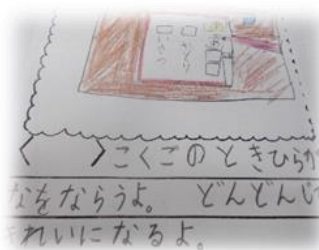 こくごのときひらが
なをならうよ。どんどんじ
きれいになるよ。